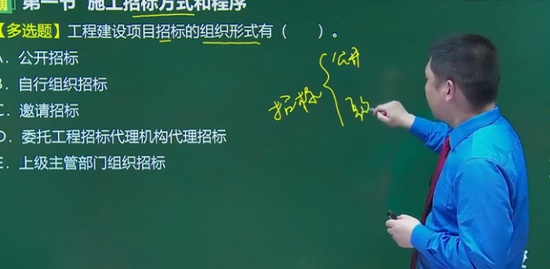 第一节 施工招标方式和程序
【多选题】工程建设项目招标的组织形式有（ ）。
A. 公开招标
B. 自行组织招标
C. 邀请招标
D. 委托工程招标代理机构代理招标
E. 上级主管部门组织招标
招标
公开